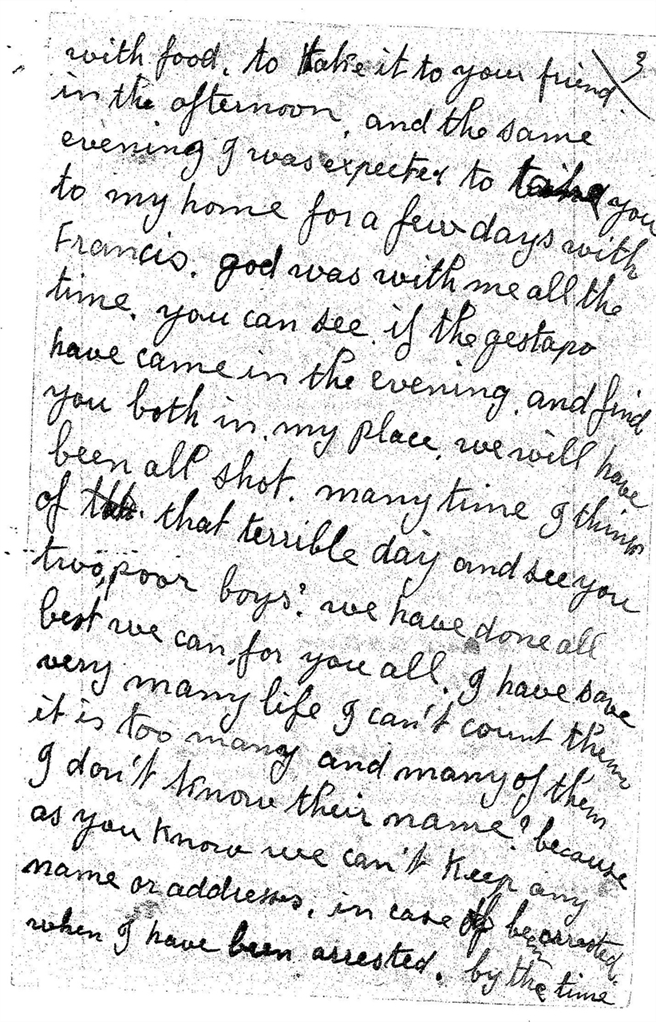 3
with food. to take it to your friend.
in the afternoon, and the same
evening I was expected to take you
to my home for a few days with
Francis. god was with me all the
time. you can see if the gestapo
have came in the evening, and find
you both in my place, we will have
been all shot. many time I things
of that terrible day and see you
two, poor boys. we have done all
best we can, for you all. I have save
very many life I can't count them
it is too many and many of them
I don't know their name? because
as you know we can't keep any
name or addresses, in case of be arrested.
when I have been arrested. by the time